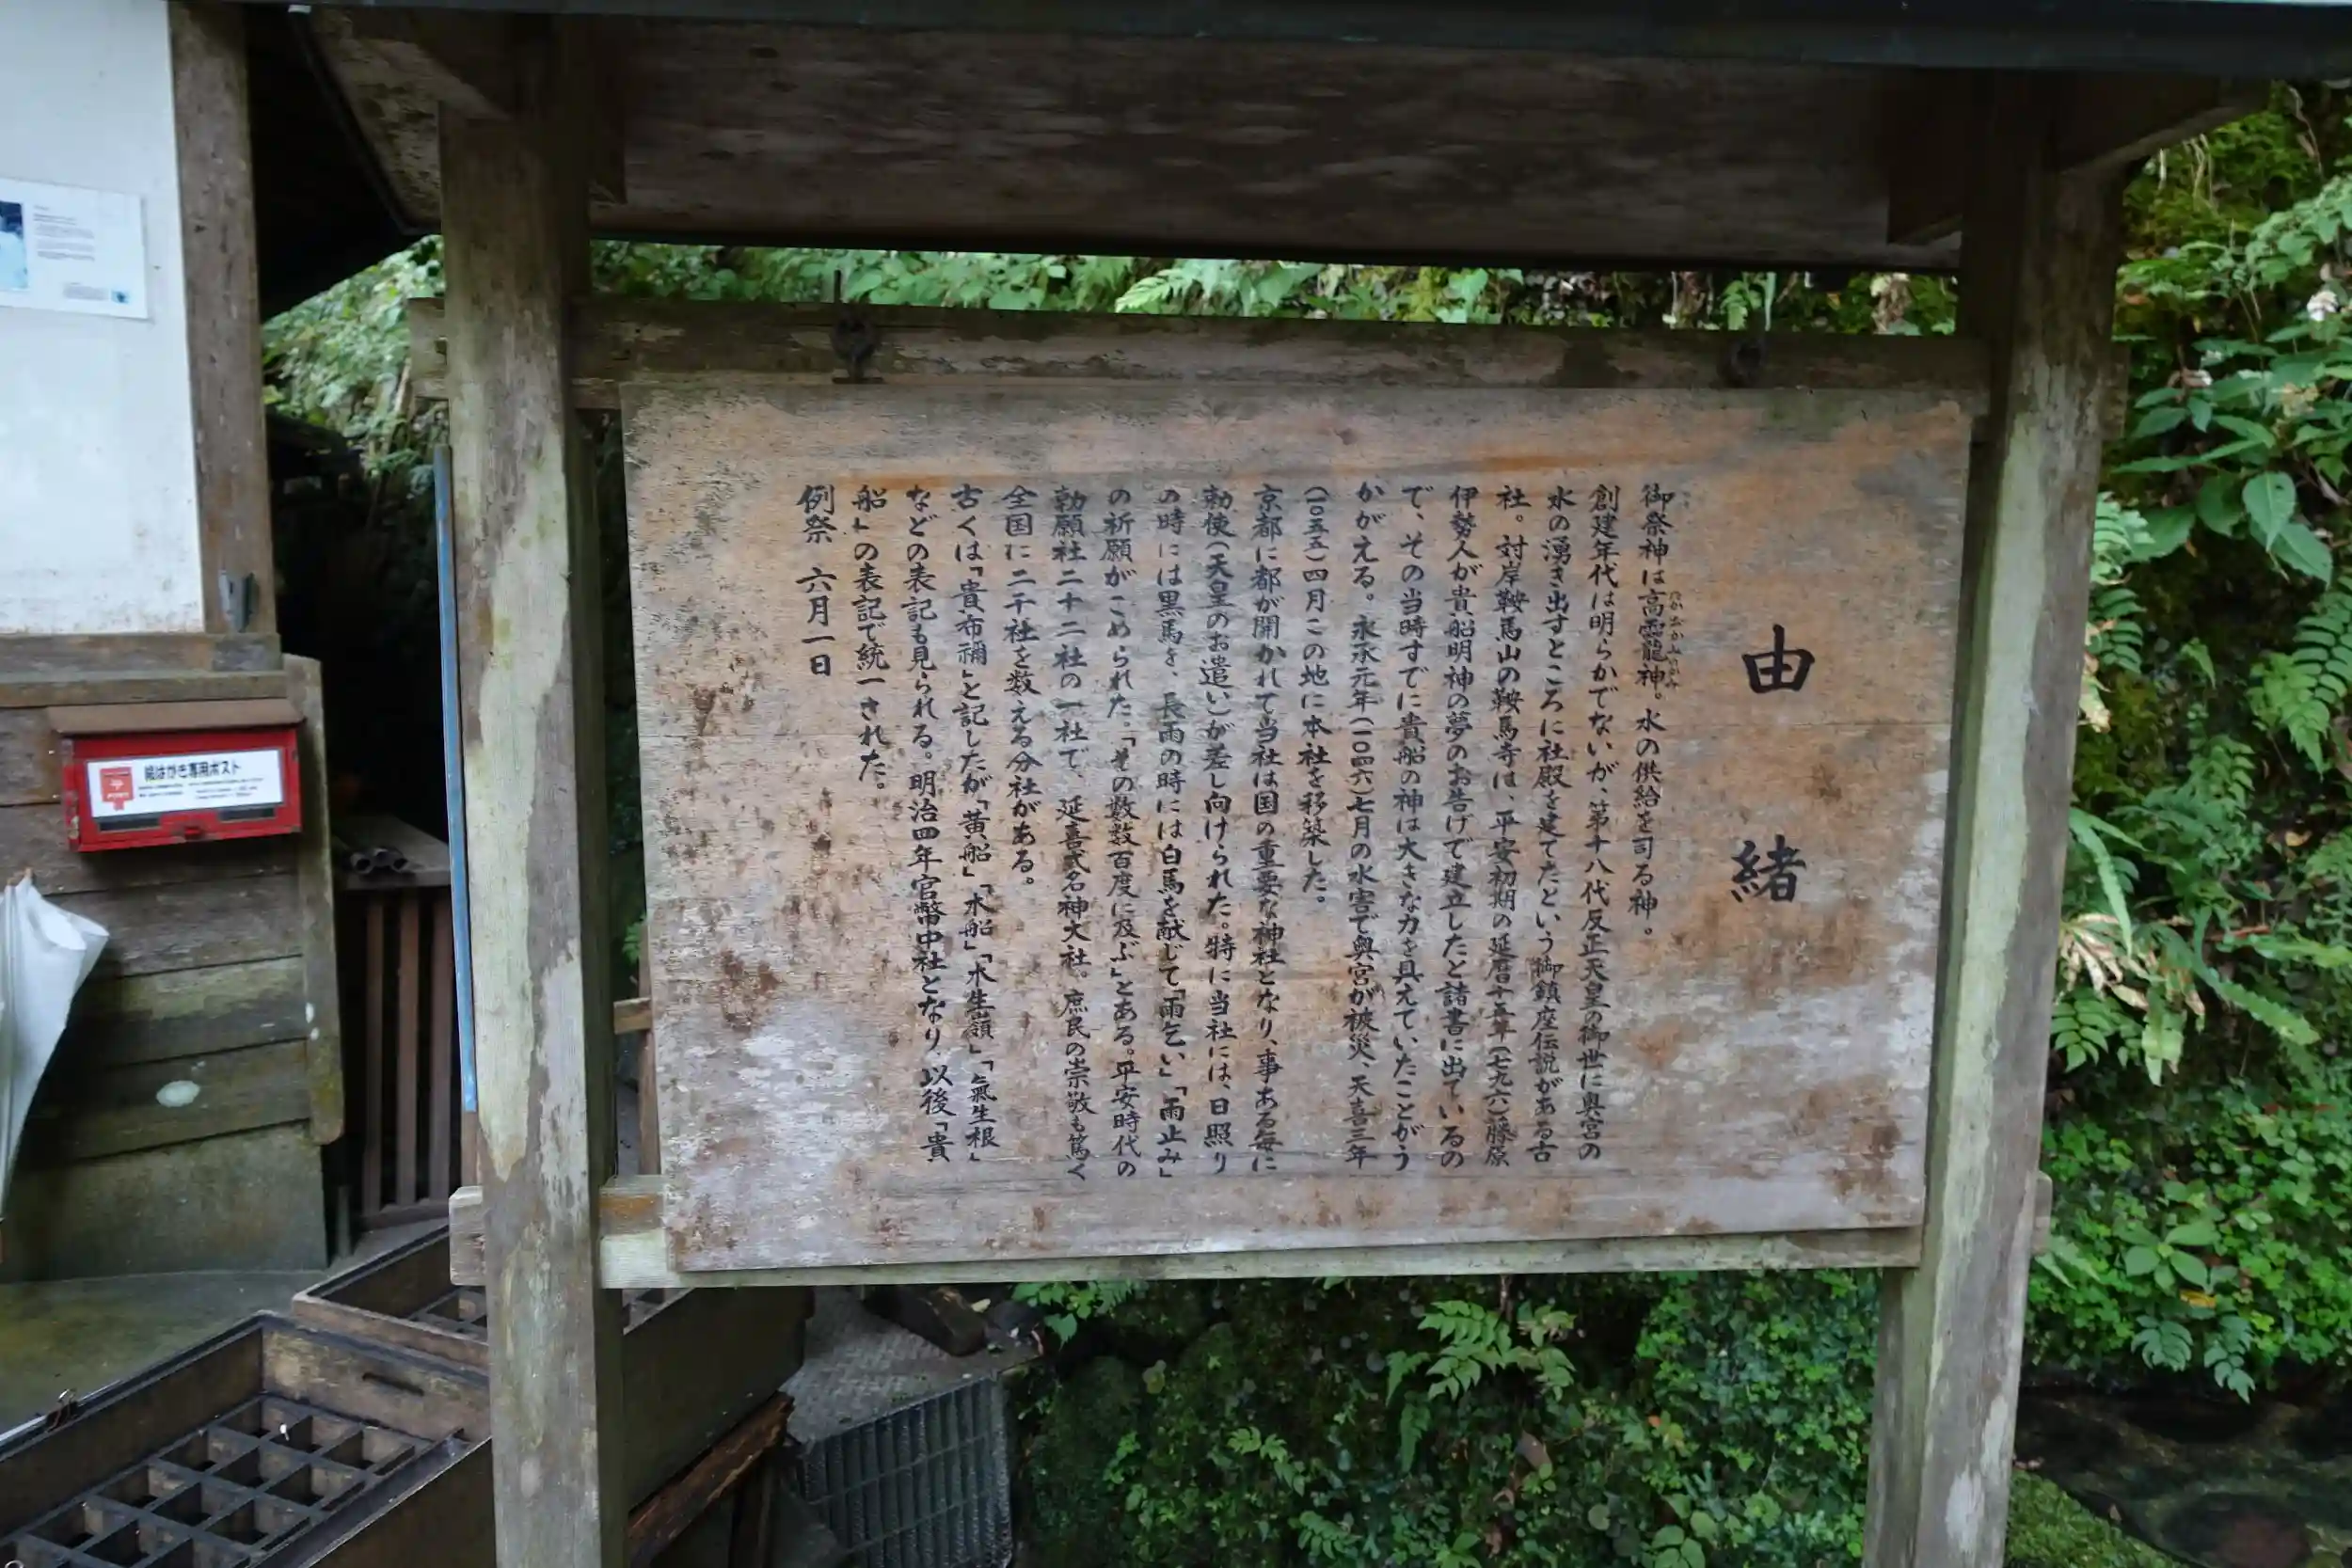 由緒
御祭神は高龗龍神。水の供給を司る神。
創建年代は明らかでないが、第十八代反正天皇の御世に奥宮の
水の湧き出すところに社殿を建てたという御鎮座伝説がある古
社。対岸鞍馬山の鞍馬寺は、平安初期の延暦十五年(七九六)藤原
伊勢人が貴船明神の夢のお告げで建立したと諸書に出ているの
で、その当時すでに貴船の神は大きな力を具えていたことがう
かがえる。永承元年(一〇四六)七月の水害で奥宮が被災、天喜三年
(一〇五五)四月この地に本社を移築した。
京都に都が開かれて当社は国の重要な神社となり、事ある毎に
勅使(天皇のお遣い)が差し向けられた。特に当社には、日照り
の時には黒馬を、長雨の時には白馬を献じて「雨乞い」「雨止み」
の祈願がこめられた。「その数数百度に及ぶ」とある。平安時代の
勅願社二十二社の一社で、延喜式名神大社。庶民の崇敬も篤く
全国に二千社を数える分社がある。
古くは「貴布禰」と記したが「黄船」「木船」「木生嶺」「氣生根」
などの表記も見られる。明治四年官幣中社となり、以後「貴
船」の表記で統一された。
例祭 六月一日
絵はがき専用ポスト